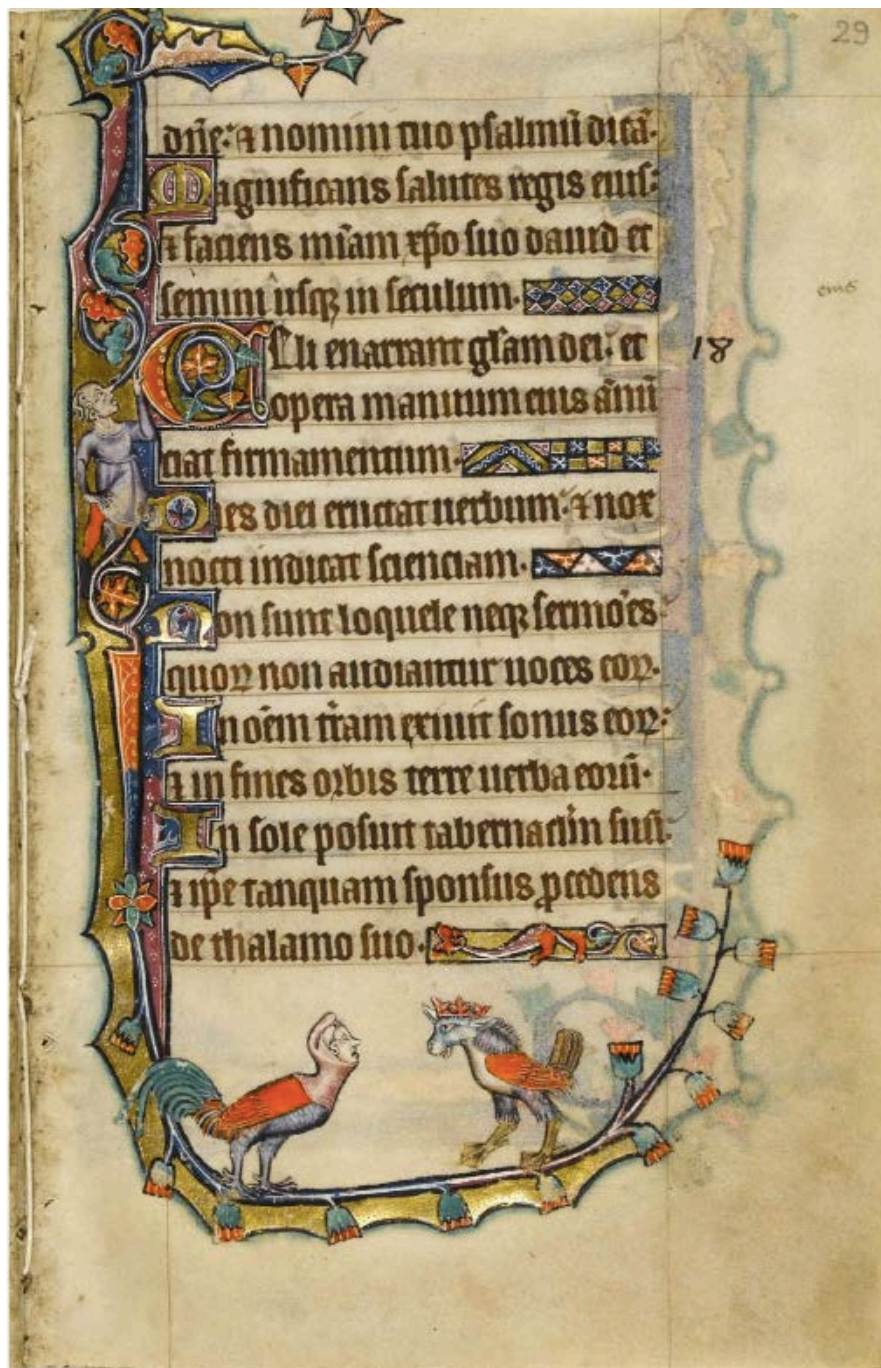 29
dn̄e: ⁊ nomini tuo psalmū dicā·
Magnificans salutes regis eius:
⁊ faciens mīam xp̄o suo dauid et
semini usq; in seculum·
Celi enarrant gl̄am dei: et
18
opera manuum eius ānū
ciat firmamentum·
Dies diei eructat uerbum: ⁊ nox
nocti indicat scienciam·
Non sunt loquele neq; sermōes:
quoꝝ non audiantur uoces eoꝝ·
In oēm tr̄am exiuit sonus eoꝝ:
⁊ in fines orbis terre uerba eorū·
In sole posuit tabernacl̄m suū:
⁊ ip̄e tanquam sponsus ꝓcedens
de thalamo suo·